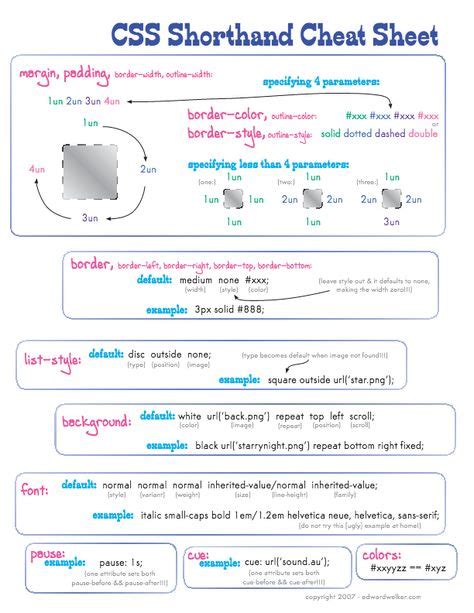 CSS Shorthand Cheat Sheet
margin, padding, border-width, outline-width:
specifying 4 parameters:
1un 2un 3un 4un
1un
2un
3un
4un
border-color, outline-color: #xxx #xxx #xxx #xxx
or
border-style, outline-style: solid dotted dashed double
specifying less than 4 parameters:
(one:) 1un 1un 1un 1un
(two:) 1un 2un 2un 1un
(three:) 1un 2un 2un 3un
border, border-left, border-right, border-top, border-bottom:
default: medium none #xxx;
(width) (style) (color)
(leave style out & it defaults to none,
making the width zero!!!)
example: 3px solid #888;
list-style: default: disc outside none;
(type) (position) (image)
(type becomes default when image not found!!!)
example: square outside url('star.png');
background: default: white url('back.png') repeat top left scroll;
(color) (image) (repeat) (position) (scroll)
example: black url('starrynight.png') repeat bottom right fixed;
font: default: normal normal normal inherited-value/normal inherited-value;
(style) (variant) (weight) (size) (line-height) (family)
example: italic small-caps bold 1em/1.2em helvetica neue, helvetica, sans-serif;
(do not try this (ugly) example at home!)
pause:
example: pause: 1s;
(one attribute sets both
pause-before && pause-after!!!)
cue:
example: cue: url('sound.au');
(one attribute sets both
cue-before && cue-after!!!)
colors:
#xxyyzz == #xyz
copyright 2007 - edwardwelker.com